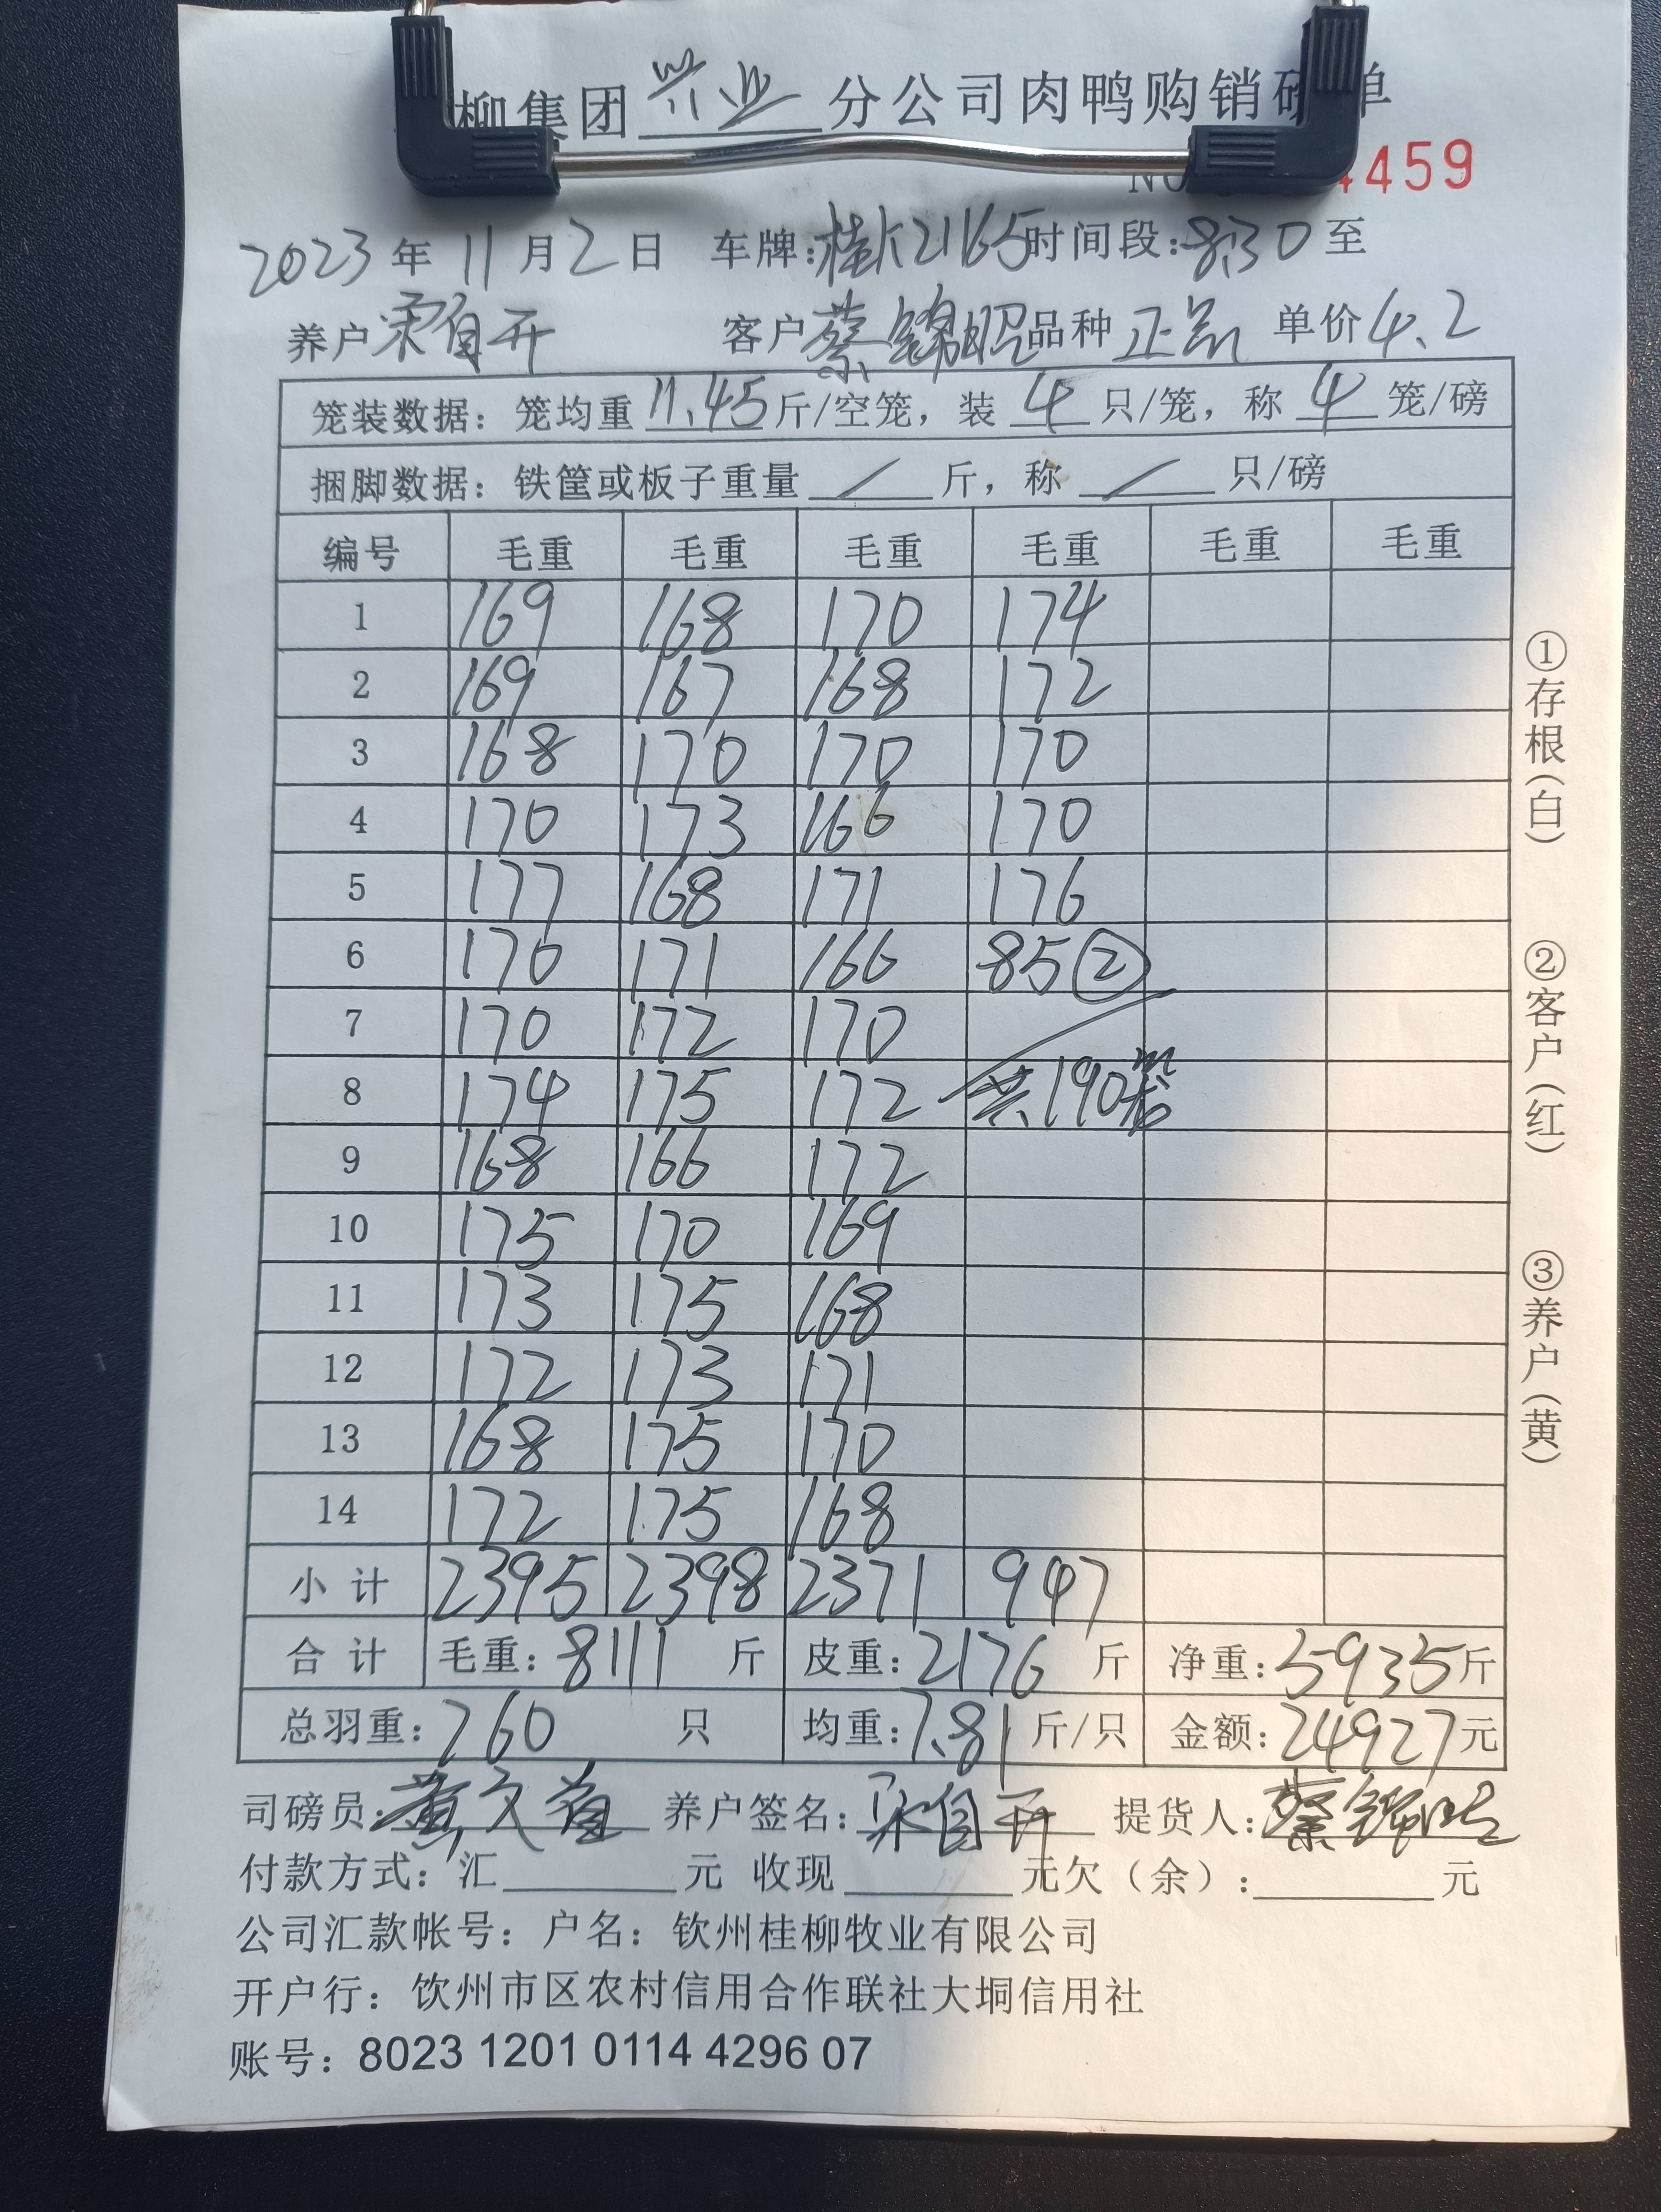 柳集团 兴业 分公司肉鸭购销磅单
NO 4459
2023年11月2日 车牌:桂K2165 时间段:8:30至
养户 自开 客户 蔡锦昭 品种 正品 单价 4.2
笼装数据：笼均重 11.45 斤/空笼，装 4 只/笼，称 4 笼/磅
捆脚数据：铁筐或板子重量 / 斤，称 / 只/磅
编号 毛重 毛重 毛重 毛重 毛重 毛重
1 169 168 170 174
2 169 167 168 172
3 168 170 170 170
4 170 173 166 170
5 177 168 171 176
6 170 171 166 85②
7 170 172 170
8 174 175 172 共190笼
9 168 166 172
10 175 170 169
11 173 175 168
12 172 173 171
13 168 175 170
14 172 175 168
小计 2395 2398 2371 947
合计 毛重：8111 斤 皮重：2176 斤 净重：5935斤
总羽重：760 只 均重：7.81 斤/只 金额：24927元
司磅员：黄文 养户签名： 自开 提货人：蔡锦昭
付款方式：汇 元 收现 元欠（余）： 元
公司汇款帐号：户名：钦州桂柳牧业有限公司
开户行：钦州市区农村信用合作联社大垌信用社
账号：8023 1201 0114 4296 07
①存根（白）
②客户（红）
③养户（黄）